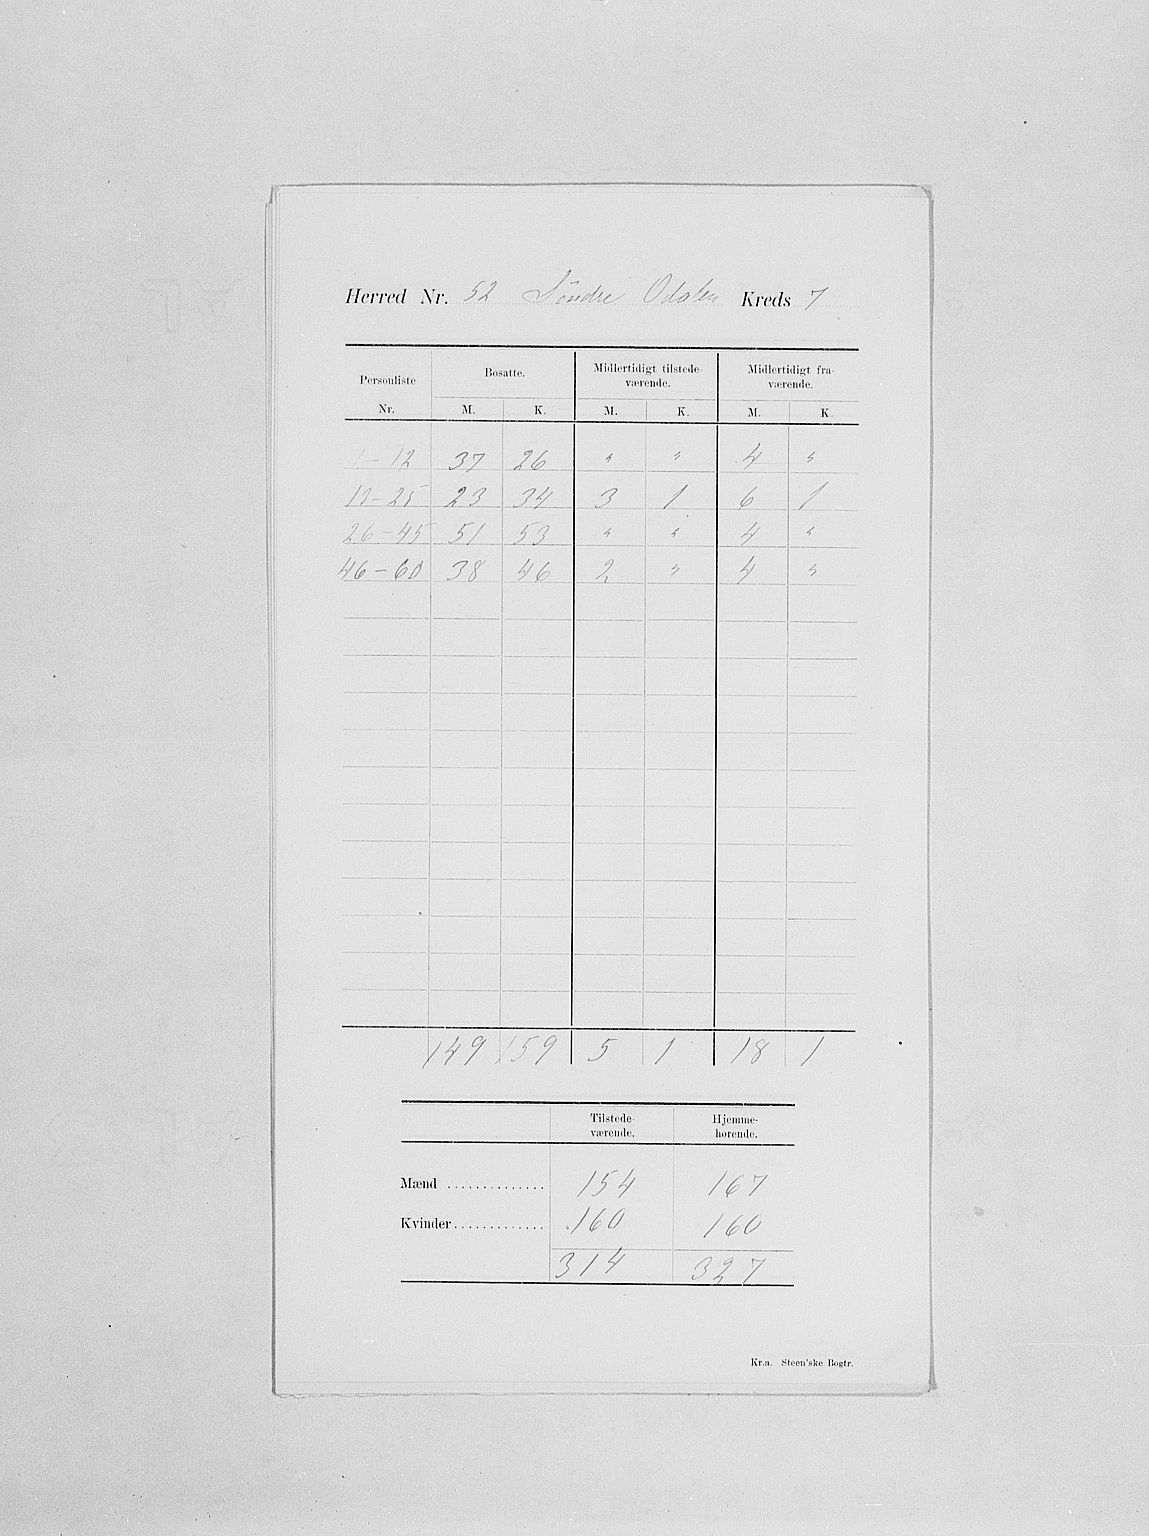 Herred Nr. 52 Søndre Odalen Kreds 7
Personliste Nr. Bosatte. Midlertidigt tilstede- værende. Midlertidigt fra- værende.
M. K. M. K. M. K.
1-12 37 26 " " 4 "
13-25 23 34 3 1 6 1
26-45 51 53 " " 4 "
46-60 38 46 2 " 4 "
149 159 5 1 18 1
Tilstede- værende. Hjemme- hørende.
Mænd .............. 154 167
Kvinder............. 160 160
314 327
Kr.a. Steen'ske Bogtr.